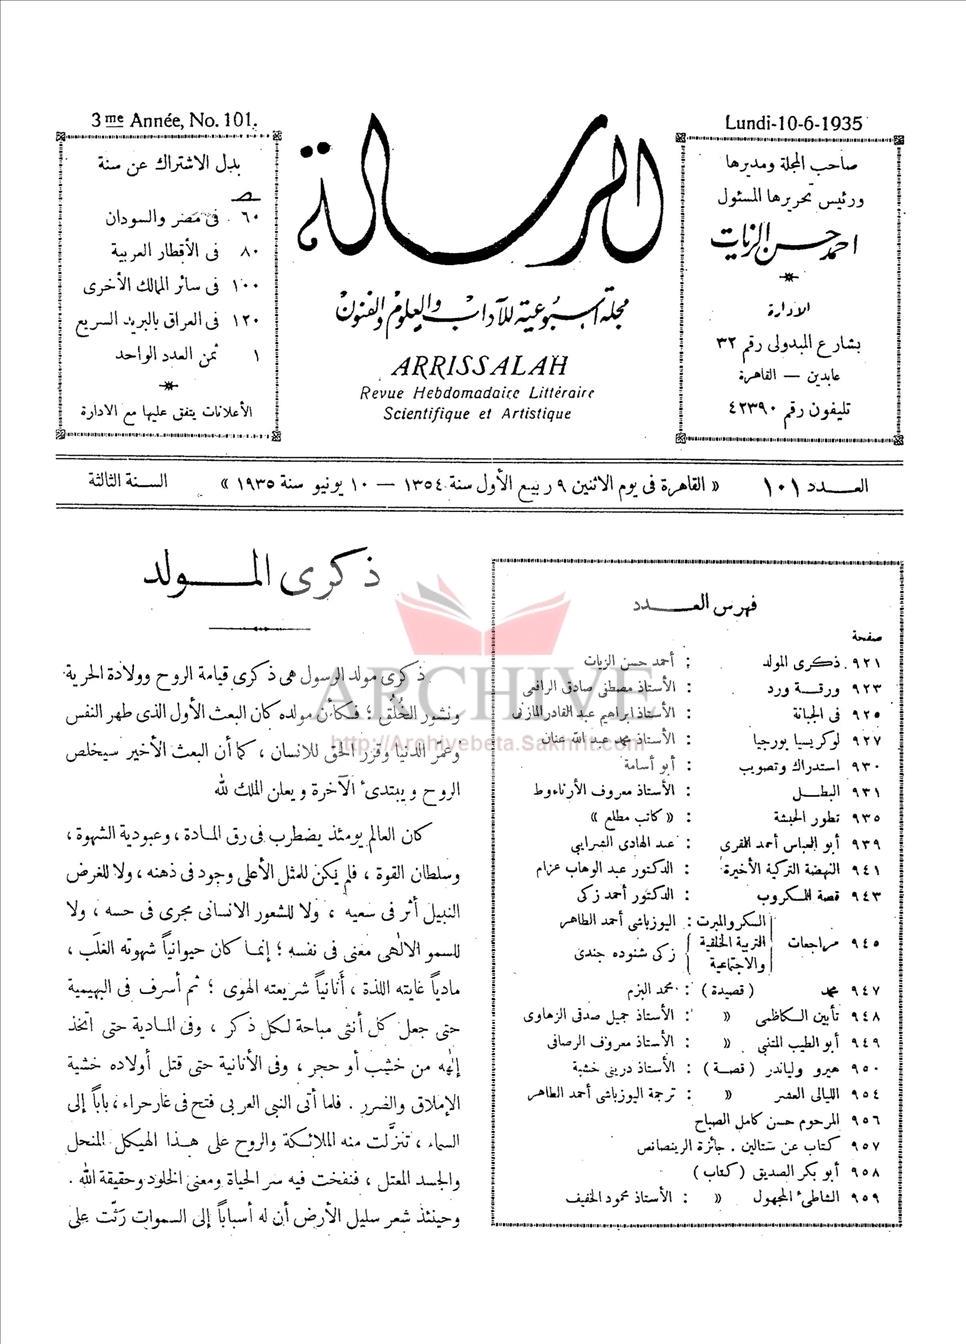 3me Année, No. 101.
Lundi-10-6-1935
صاحب المجلة ومديرها
ورئيس تحريرها المسئول
احمد حسن الزيات
الادارة
بشارع المبدولى رقم ٣٢
عابدين — القاهرة
تليفون رقم ٤٢٣٩٠
الرسالة
مجلة اسبوعية للآداب والعلوم والفنون
ARRISSALAH
Revue Hebdomadaire Littéraire
Scientifique et Artistique
بدل الاشتراك عن سنة
٦٠ فى مصر والسودان
٨٠ فى الأقطار العربية
١٠٠ فى سائر الممالك الأخرى
١٢٠ فى العراق بالبريد السريع
١ ثمن العدد الواحد
الأعلانات يتفق عليها مع الادارة
العـــدد ١٠١ « القاهرة فى يوم الاثنين ٩ ربيع الأول سنة ١٣٥٤ — ١٠ يونيو سنة ١٩٣٥ » السـنة الثالثة
فهرس العـــدد
صفحة
٩٢١ ذكرى المولد : أحمد حسن الزيات
٩٢٣ ورقـــة ورد : الأستاذ مصطفى صادق الرافعى
٩٢٥ فى الجبانة : الأستاذ ابراهيم عبد القادر المازنى
٩٢٧ لوكريسيا بورجيا : الأستاذ محمد عبد الله عنان
٩٣٠ استدراك وتصويب : أبو أسامة
٩٣١ البطـــل : الأستاذ معروف الأرناءوط
٩٣٥ تطور الحبشة : « كاتب مطلع »
٩٣٩ أبو العباس أحمد المقرى : عبد الهادى الشرايبى
٩٤١ النهضة التركية الأخيرة : الدكتور عبد الوهاب عزام
٩٤٣ قصة المكروب : الدكتور أحمد زكى
٩٤٥ مراجعات السكر والمبرت : اليوزباشى أحمد الطاهر
التربية الخلقية والاجتماعية زكى شنوده جندى
٩٤٧ محمد ( قصيدة ) : محمد البزم
٩٤٨ تأبين الكاظمى « : الأستاذ جميل صدقى الزهاوى
٩٤٩ أبو الطيب المتنبى « : الأستاذ معروف الرصافى
٩٥٠ هيرو ولياندر ( قصـة ) : الأستاذ درينى خشبة
٩٥٤ الليالى العشر « : ترجمة اليوزباشى أحمد الطاهر
٩٥٦ المرحوم حسن كامل الصباح
٩٥٧ كتاب عن ستالين . جائزة الرينصانس
٩٥٨ أبو بكر الصديق ( كتاب )
٩٥٩ الشاطىء المجهول « : الأستاذ محمود الخفيف
ذكرى المـــولد
ذكرى مولد الرسول هى ذكرى قيامة الروح وولادة الحرية
ونشور الخُلُق ؛ فكأن مولده كان البعث الأول الذى طهر النفس
وعمَّر الدنيا وقرر الحق للانسان ، كما أن البعث الأخير سيخلص
الروح ويبتدىء الآخرة ويعلن الملك لله
كان العالم يومئذ يضطرب فى رق المـادة ، وعبودية الشهوة ،
وسلطان القوة ، فلم يكن للمثل الأعلى وجود فى ذهنه ، ولا للغرض
النبيل أثر فى سعيه ، ولا للشعور الانسانى مجرى فى حسه ، ولا
للسمو الالٰهى معنى فى نفسه ؛ إنمـا كان حيوانياً شهوته الغلَب ،
مادياً غايته اللذة ، أنانياً شريعته الهوى ؛ ثم أسرف فى البهيمية
حتى جعل كل أنثى مباحة لـكل ذكر ، وفى المـادية حتى اتخذ
إلٰهه من خشب أو حجر ، وفى الأنانية حتى قتل أولاده خشية
الإملاق والضرر . فلما أتى النبى العربى فتح فى غار حراء ، باباً إلى
السماء ، تنزلت منه الملائـكة والروح على هـذا الهيكل المنحل
والجسد المعتل ، فنفخت فيه سر الحياة ومعنى الخلود وحقيقة الله .
وحينئذ شعر سليل الأرض أن له أسباباً إلى السموات رَثّت على
ARCHIVE
http://Archivebeta.Sakhrit.com